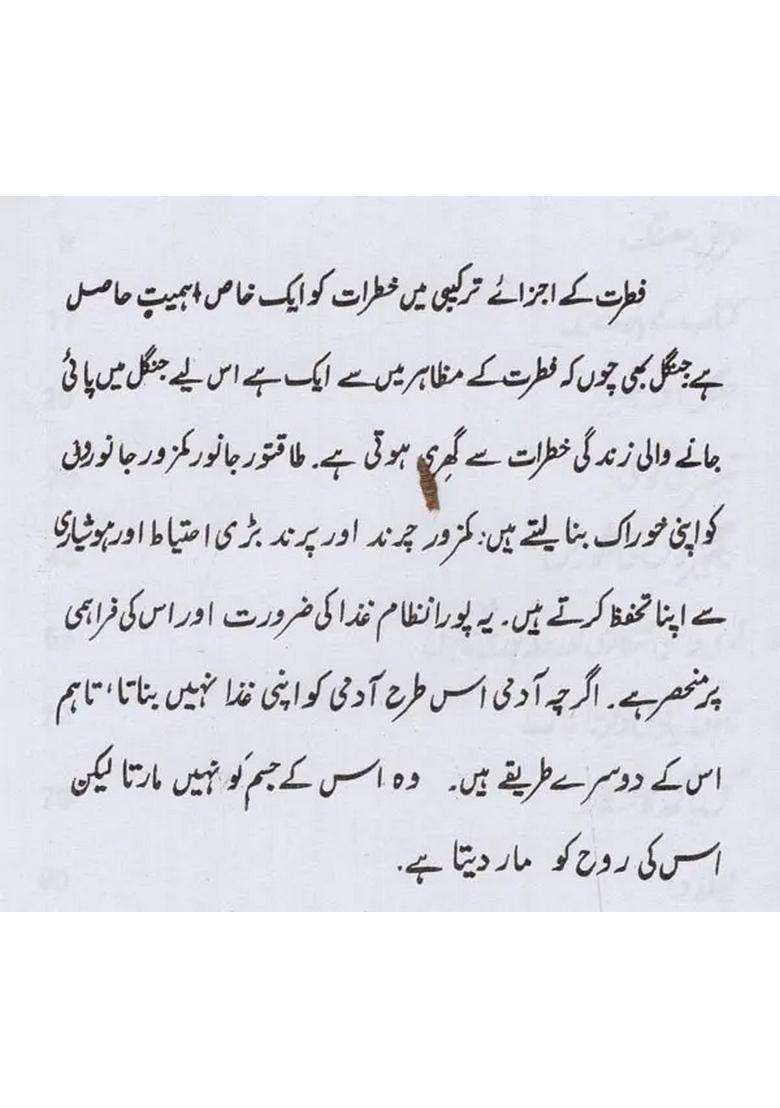 فطرت کے اجزائے ترکیبی میں خطرات کو ایک خاص اہمیت حاصل
ہے جنگل بھی چوں کہ فطرت کے مظاہر میں سے ایک ہے اس لیے جنگل میں پائی
جانے والی زندگی خطرات سے گھری ہوتی ہے۔ طاقتور جانور کمزور جانوروں
کو اپنی خوراک بنا لیتے ہیں: کمزور چرند اور پرند بڑی احتیاط اور ہوشیاری
سے اپنا تحفظ کرتے ہیں۔ یہ پورا نظام غذا کی ضرورت اور اس کی فراہمی
پر منحصر ہے۔ اگرچہ آدمی اس طرح آدمی کو اپنی غذا نہیں بناتا، تاہم
اس کے دوسرے طریقے ہیں۔ وہ اس کے جسم کو نہیں مارتا لیکن
اس کی روح کو مار دیتا ہے۔